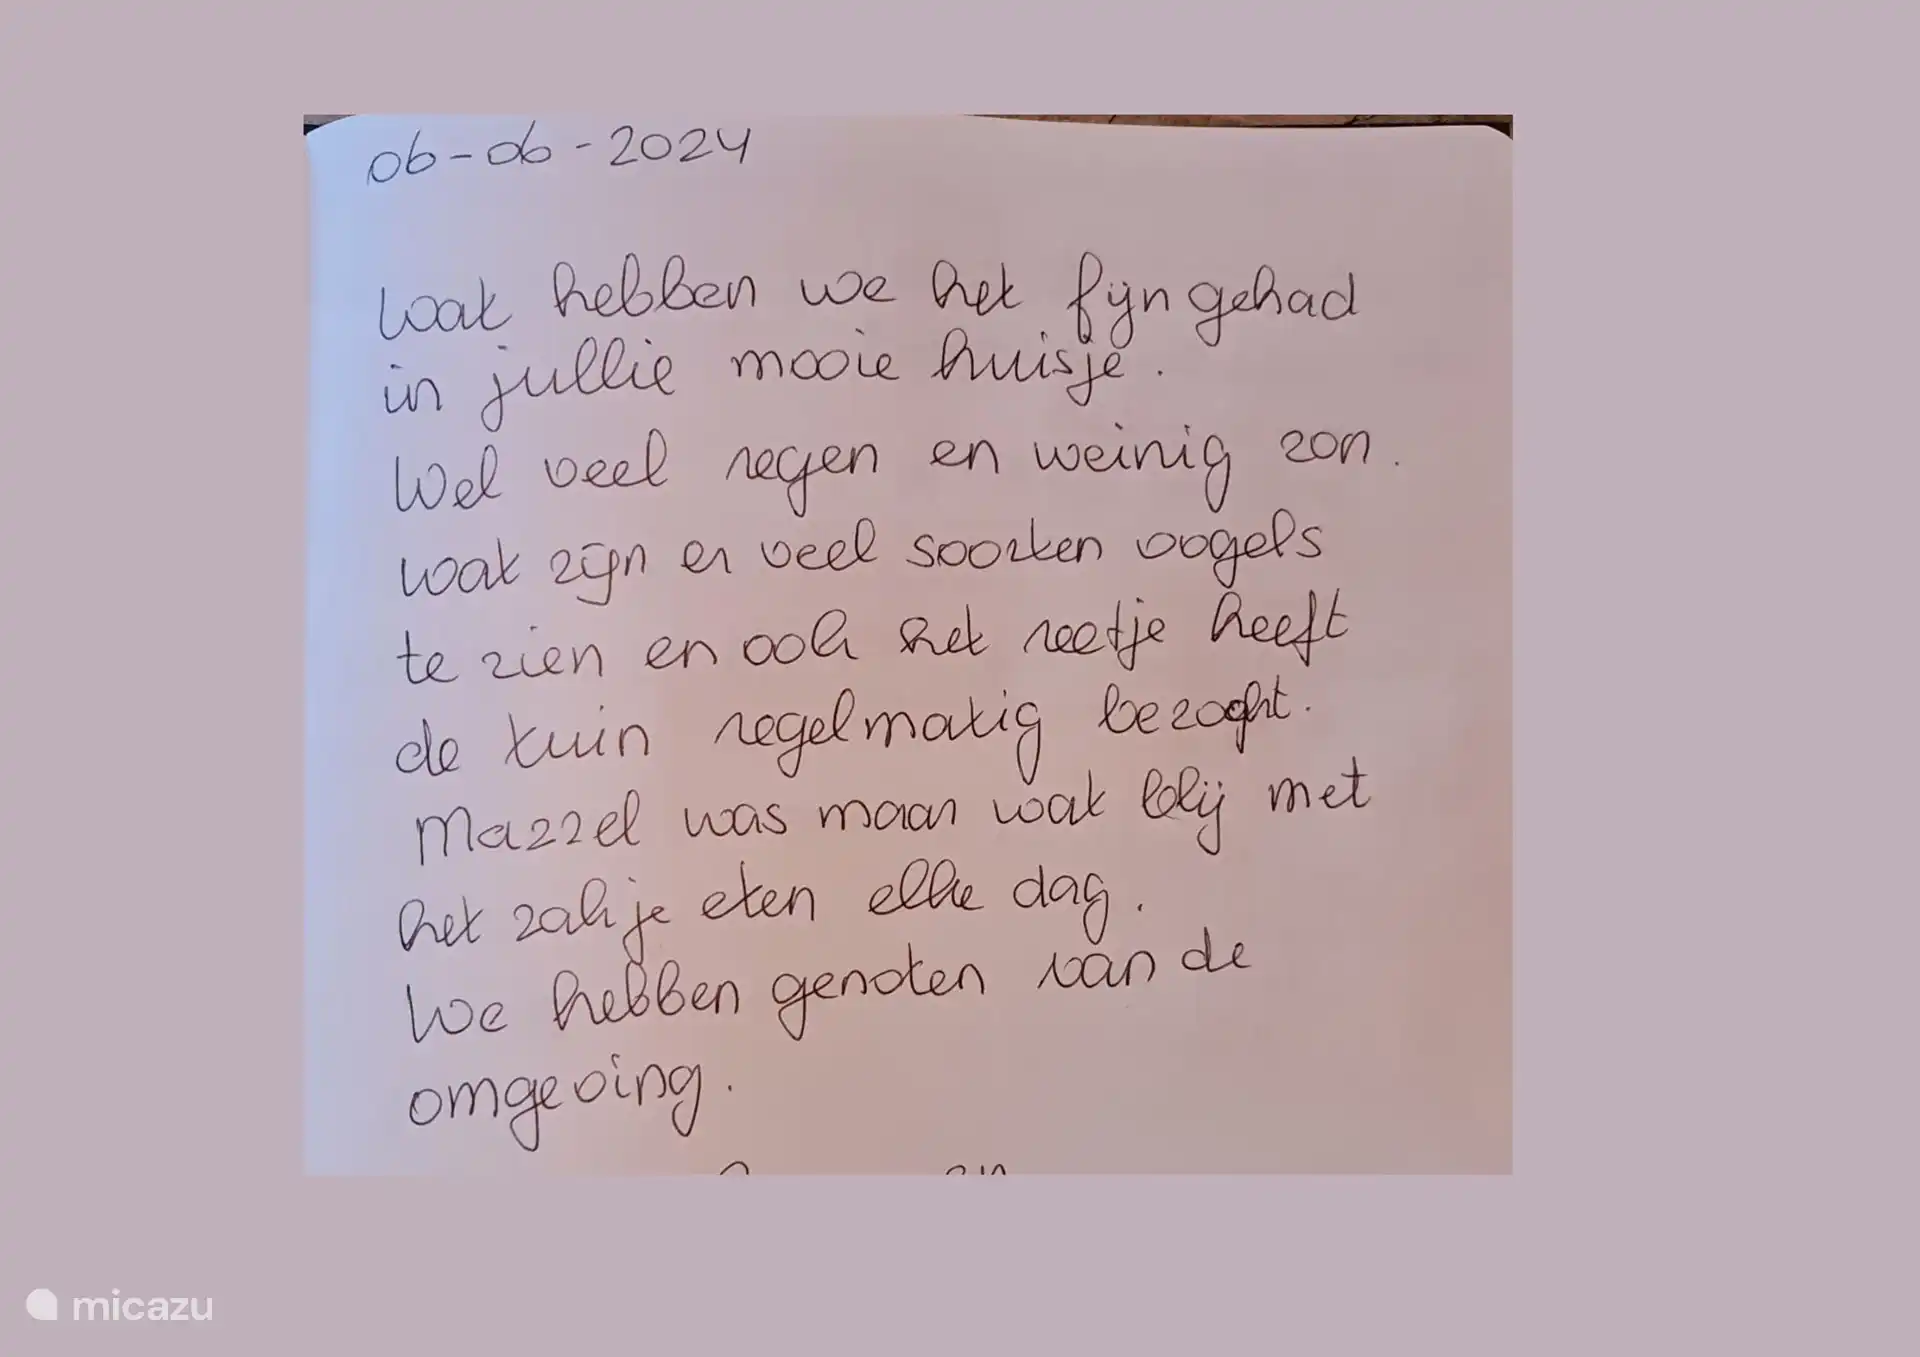 06-06-2024
Wat hebben we het fijn gehad
in jullie mooie huisje.
Wel veel regen en weinig zon.
Wat zijn er veel soorten vogels
te zien en ook het reetje heeft
de tuin regelmatig bezocht.
Mazzel was maar wat blij met
het zakje eten elke dag.
We hebben genoten van de
omgeving.
micazu